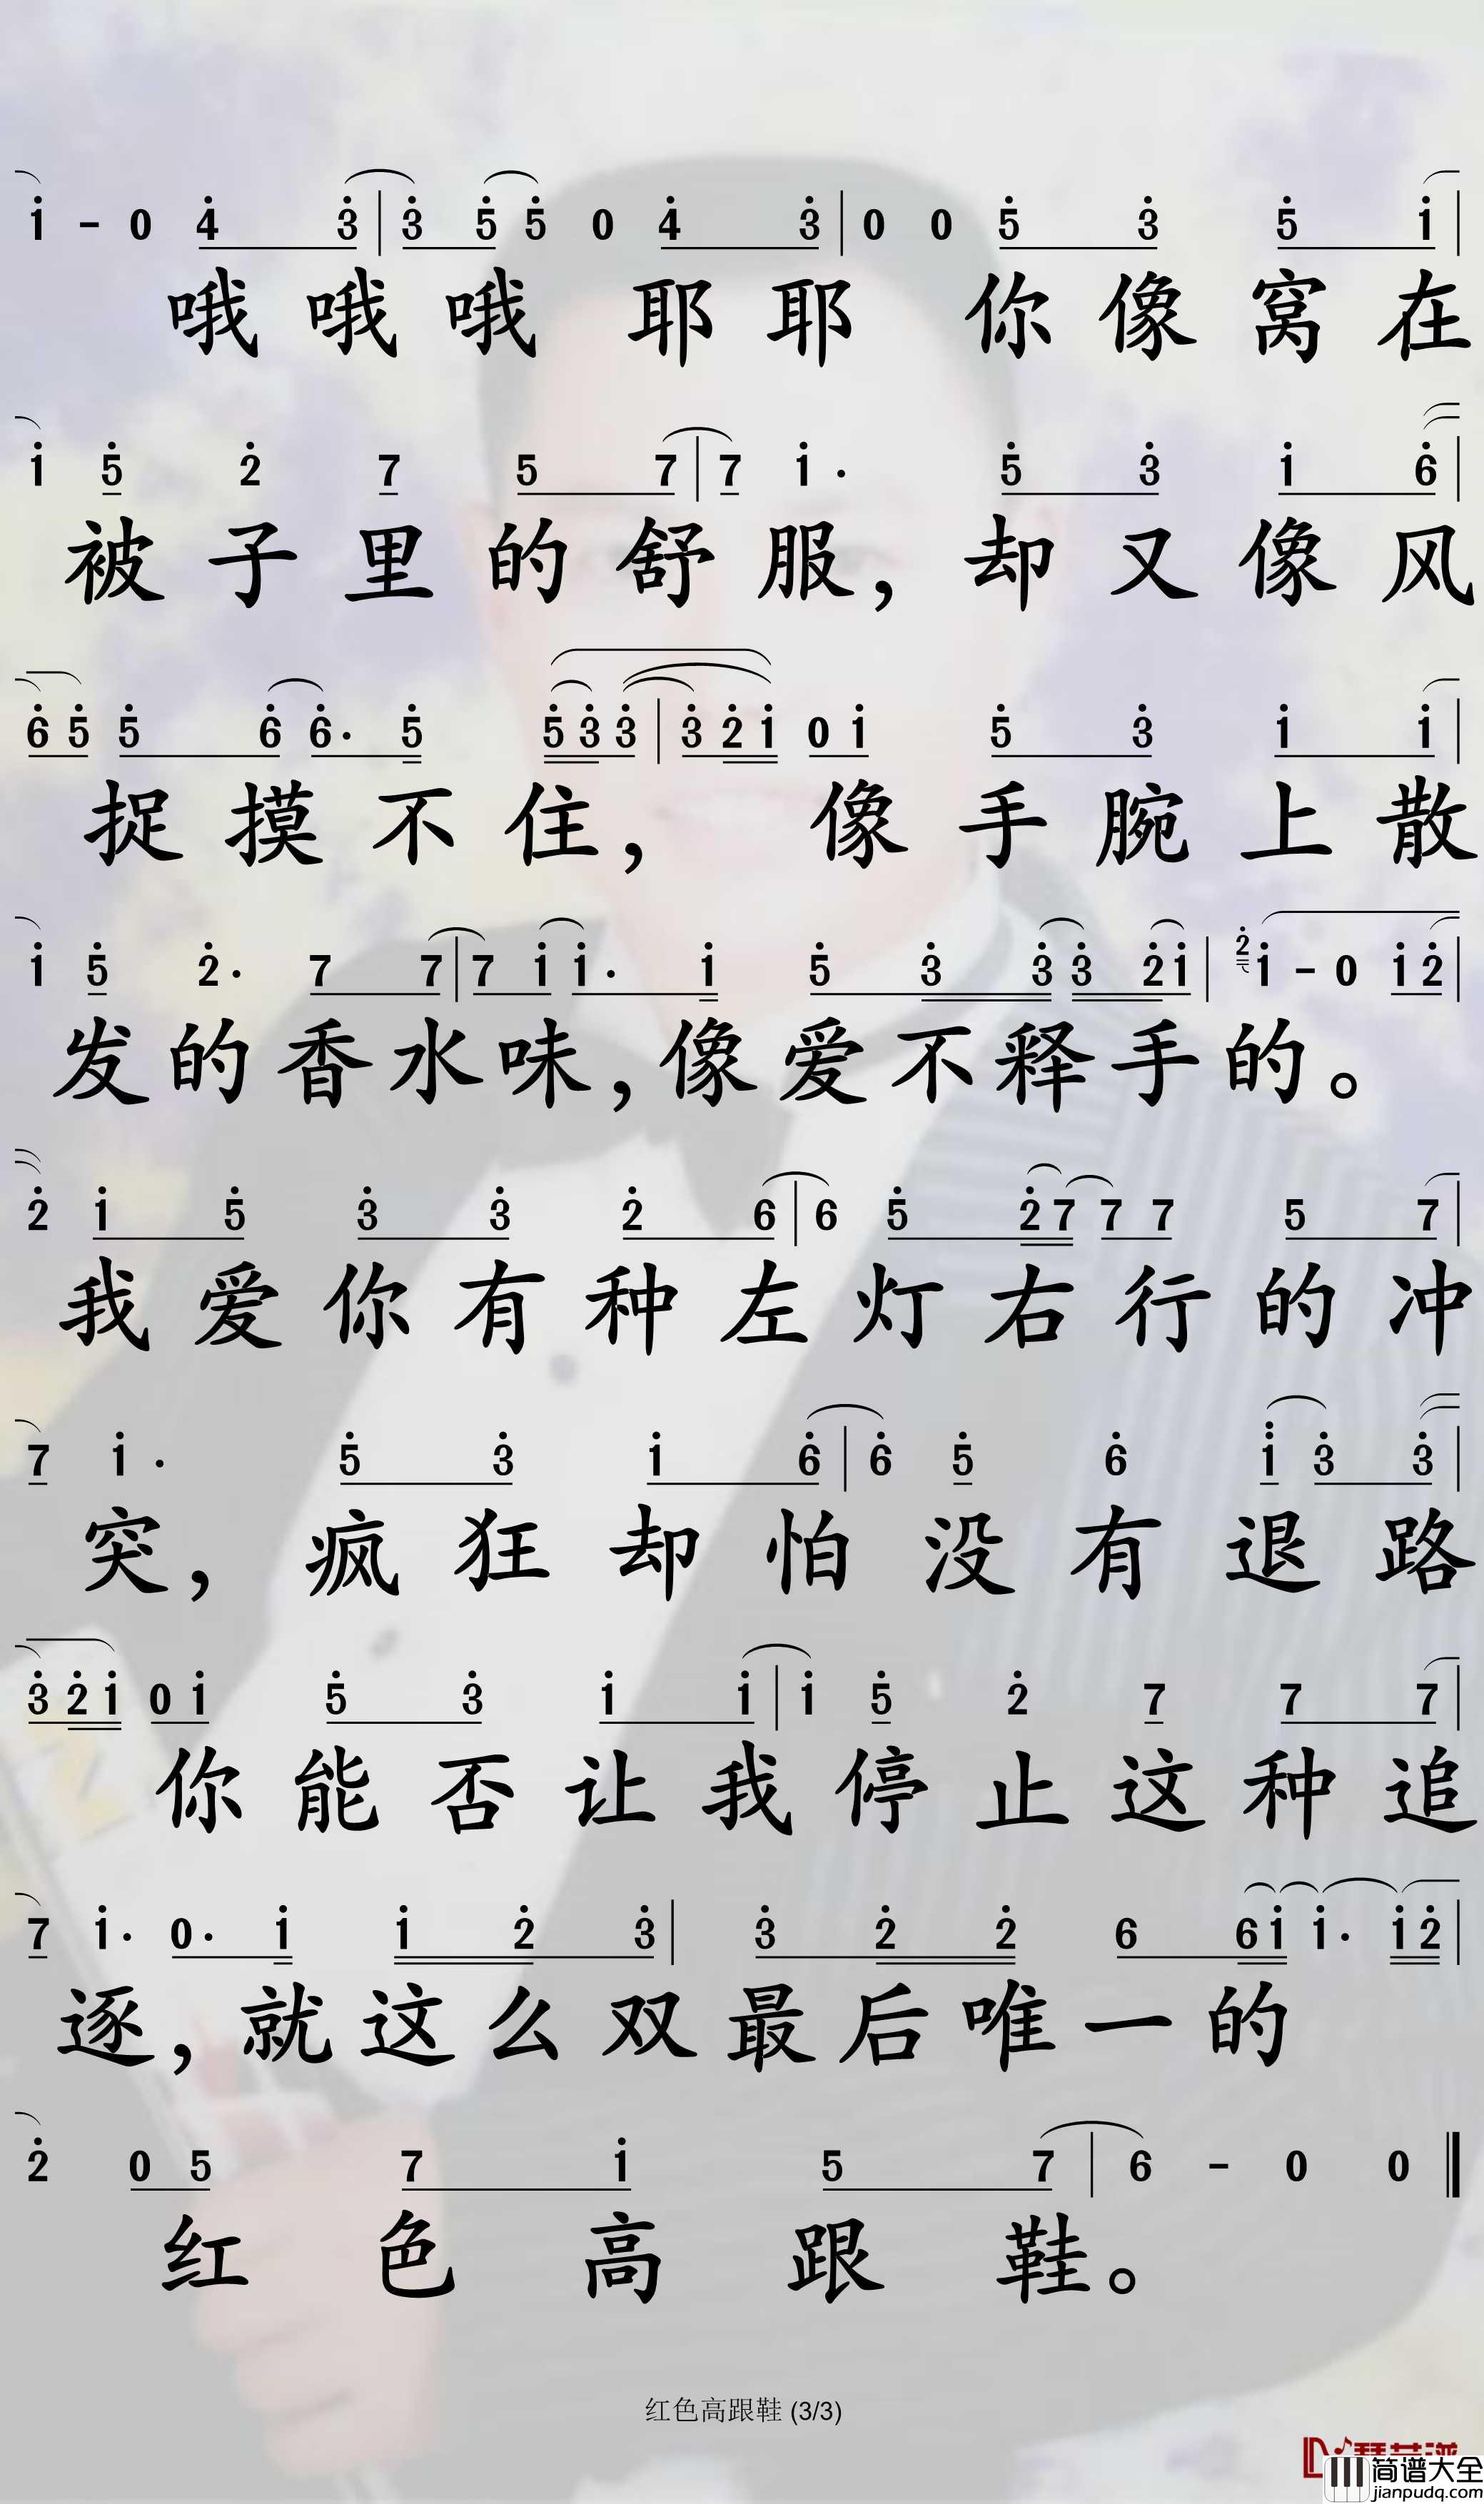 i - 0 4 3 | 3 5 5 0 4 3 | 0 0 5 3 5 i |
哦 哦 哦 耶 耶 你 像 窝 在
i 5 2 7 5 7 | 7 i · 5 3 i 6 |
被 子 里 的 舒 服, 却 又 像 风
6 5 5 6 6· 5 5 3 3 | 3 2 i 0 i 5 3 i i |
捉 摸 不 住, 像 手 腕 上 散
i 5 2· 7 7 | 7 i i· i 5 3 3 3 2 i | 2 i - 0 i 2 |
发 的 香 水 味, 像 爱 不 释 手 的。
2 i 5 3 3 2 6 | 6 5 2 7 7 7 5 7 |
我 爱 你 有 种 左 灯 右 行 的 冲
7 i · 5 3 i 6 | 6 5 6 i 3 3 |
突, 疯 狂 却 怕 没 有 退 路
3 2 i 0 i 5 3 i i | i 5 2 7 7 7 |
你 能 否 让 我 停 止 这 种 追
7 i· 0· i i 2 3 | 3 2 2 6 6 i i· i 2 |
逐, 就 这 么 双 最 后 唯 一 的
2 0 5 7 i 5 7 | 6 - 0 0
红 色 高 跟 鞋。
红色高跟鞋 (3/3)
简谱大全
jianpudq.com